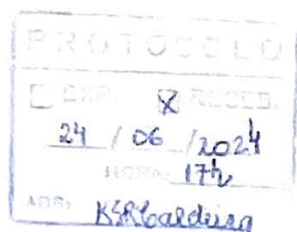 PROTOCOLO
☐ EXP. ☒ RECEB.
24 / 06 / 2024
HORA: 17h
ASS: